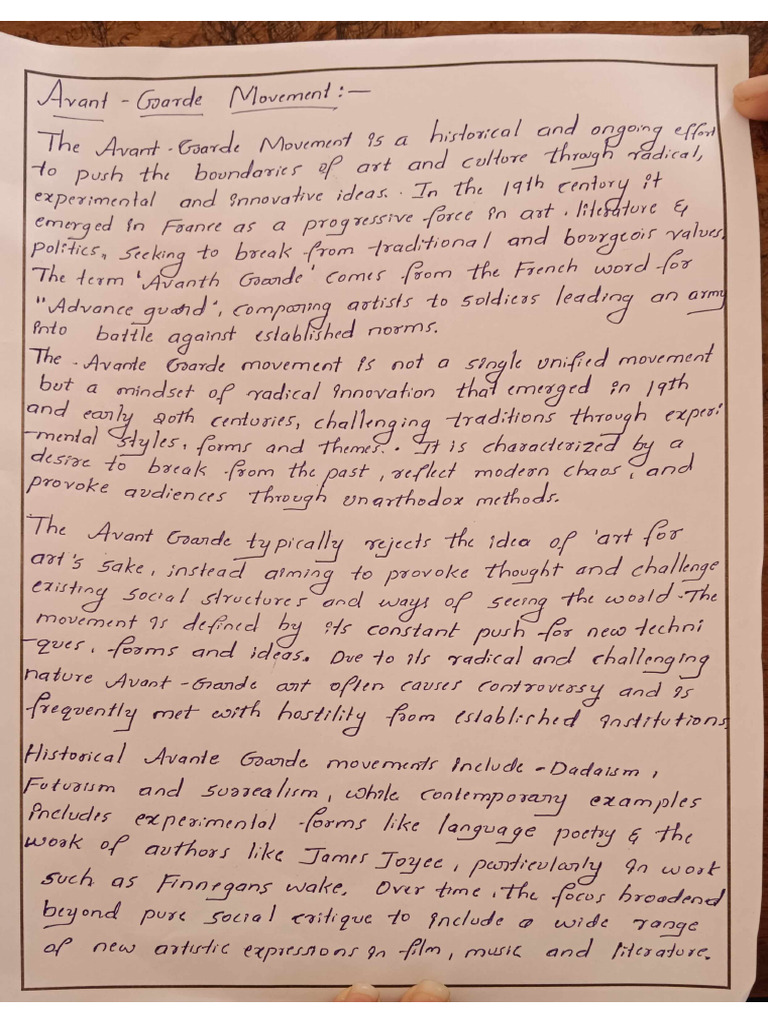 Avant-Garde Movement:-
The Avant-Garde Movement is a historical and ongoing effort
to push the boundaries of art and culture through radical,
experimental and innovative ideas. In the 19th century it
emerged in France as a progressive force in art. literature &
politics, seeking to break from traditional and bourgeois values.
The term 'Avanth Garde' comes from the French word for
"Advance guard", comparing artists to soldiers leading an army
into battle against established norms.
The Avante Garde movement is not a single unified movement
but a mindset of radical innovation that emerged in 19th
and early 20th centuries, challenging traditions through experi
-mental styles, forms and themes. It is characterized by a
desire to break from the past, reflect modern chaos, and
provoke audiences through unarthodox methods.
The Avant Garde typically rejects the idea of 'art for
art's sake, instead aiming to provoke thought and challenge
existing social structures and ways of seeing the world. The
movement is defined by its constant push for new techni
-ques, forms and ideas. Due to its radical and challenging
nature Avant-Garde art often causes controversy and is
frequently met with hostility from established institutions.
Historical Avante Garde movements include - Dadaism,
Futurism and surrealism, while contemporary examples
includes experimental forms like language poetry & the
work of authors like James Joyce, particularly in work
such as Finnegans wake. Over time, the focus broadend
beyond pure social critique to include a wide range
of new artistic expressions in film, music and literature.